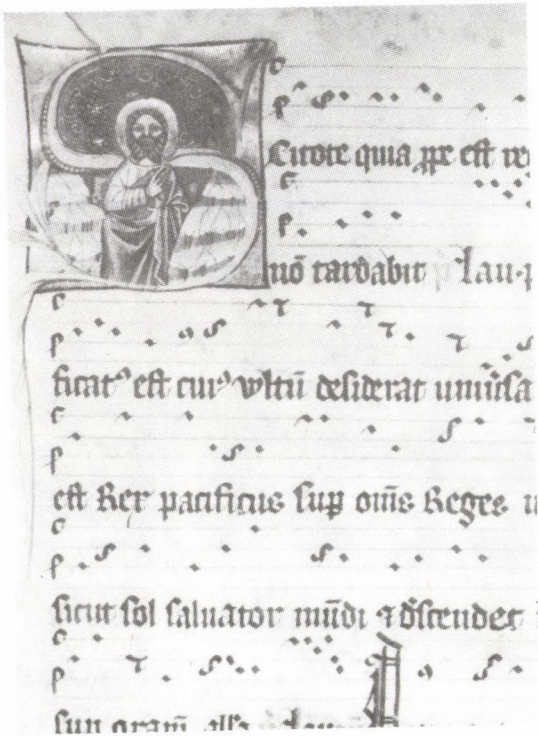 Scitote quia ꝓpe est re
nō tardabit Lau·p
ficatꝰ est cuiꝰ vultū desiderat uniũsa
est Rex pacificus sup om̄s Reges
sicut sol saluator mūdi ⁊ descendet